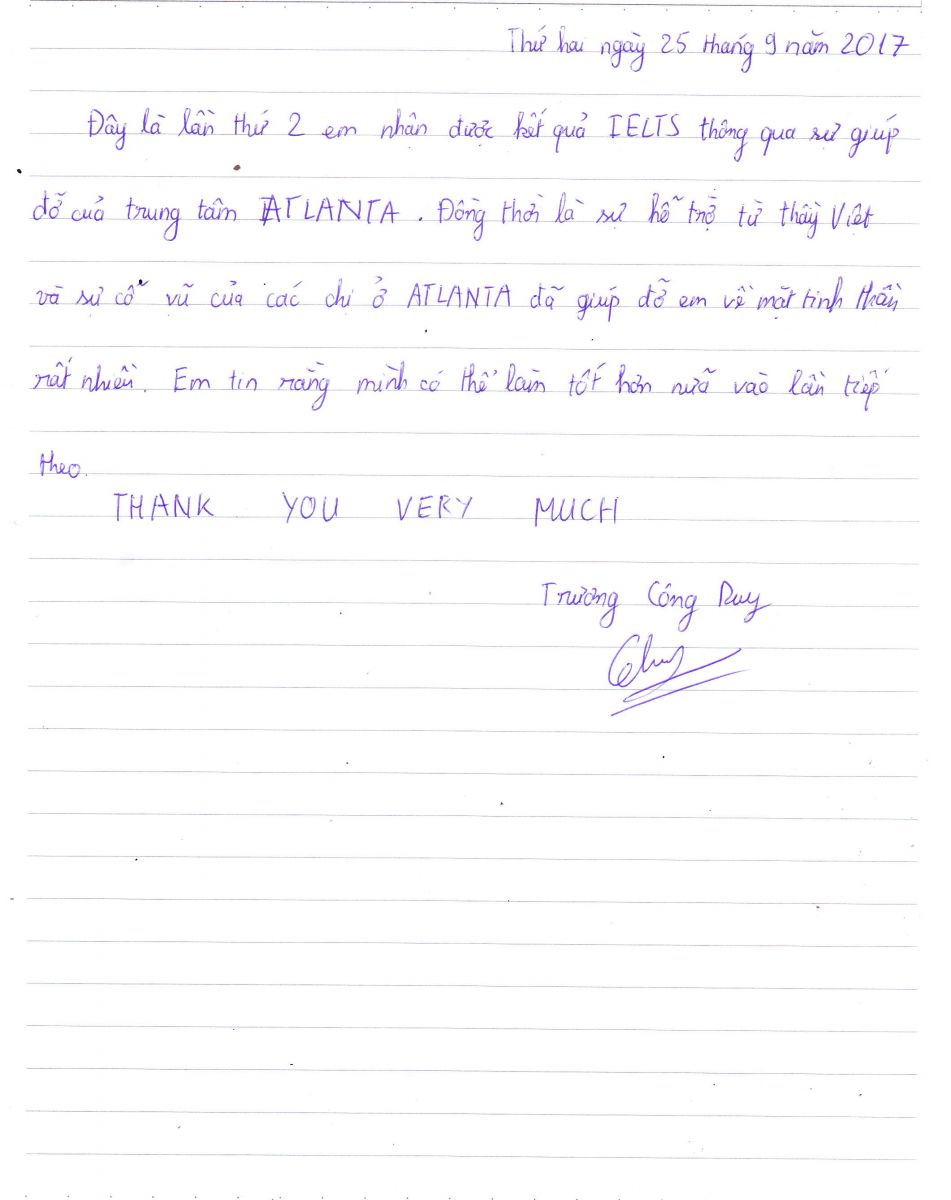 Thứ hai ngày 25 tháng 9 năm 2017
Đây là lần thứ 2 em nhận được kết quả IELTS thông qua sự giúp
đỡ của trung tâm ATLANTA. Đồng thời là sự hỗ trợ từ thầy Việt
và sự cỗ vũ của các chị ở ATLANTA đã giúp đỡ em về mặt tinh thần
rất nhiều. Em tin rằng mình có thể làm tốt hơn nữa vào lần tiếp
theo.
THANK YOU VERY MUCH
Trương Công Duy